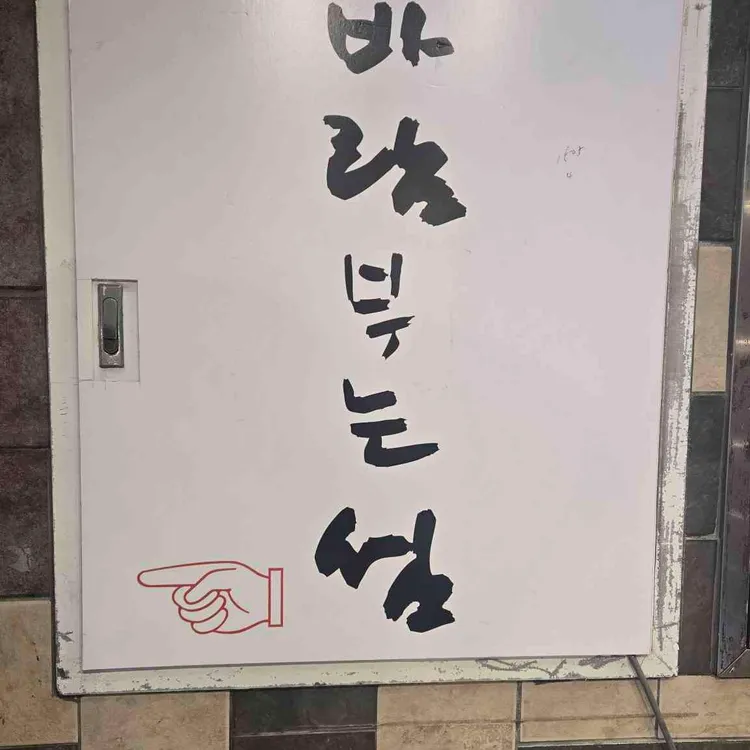 바
람
부
는
섬